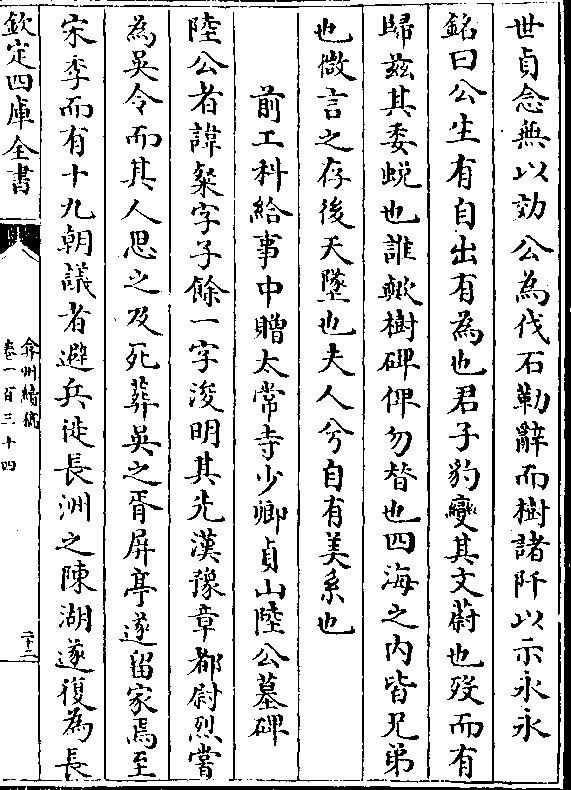 世貞念無以効公為伐石勒辭而樹諸阡以示永永
銘曰公生有自出有為也君子豹變其文蔚也歿而有
歸茲其委蛻也誰歟樹碑俾勿替也四海之内皆兄弟
也微言之存後天墜也夫人兮自有美系也
前工科給事中贈太常寺少卿貞山陸公墓碑
陸公者諱粲字子餘一字浚明其先漢豫章都尉烈嘗
為吳令而其人思之及死葬吳之胥屏亭遂留家焉至
宋季而有十九朝議者避兵徙長洲之陳湖遂復為長
欽定四庫全書
弇州續稿
卷一百三十四
二十二